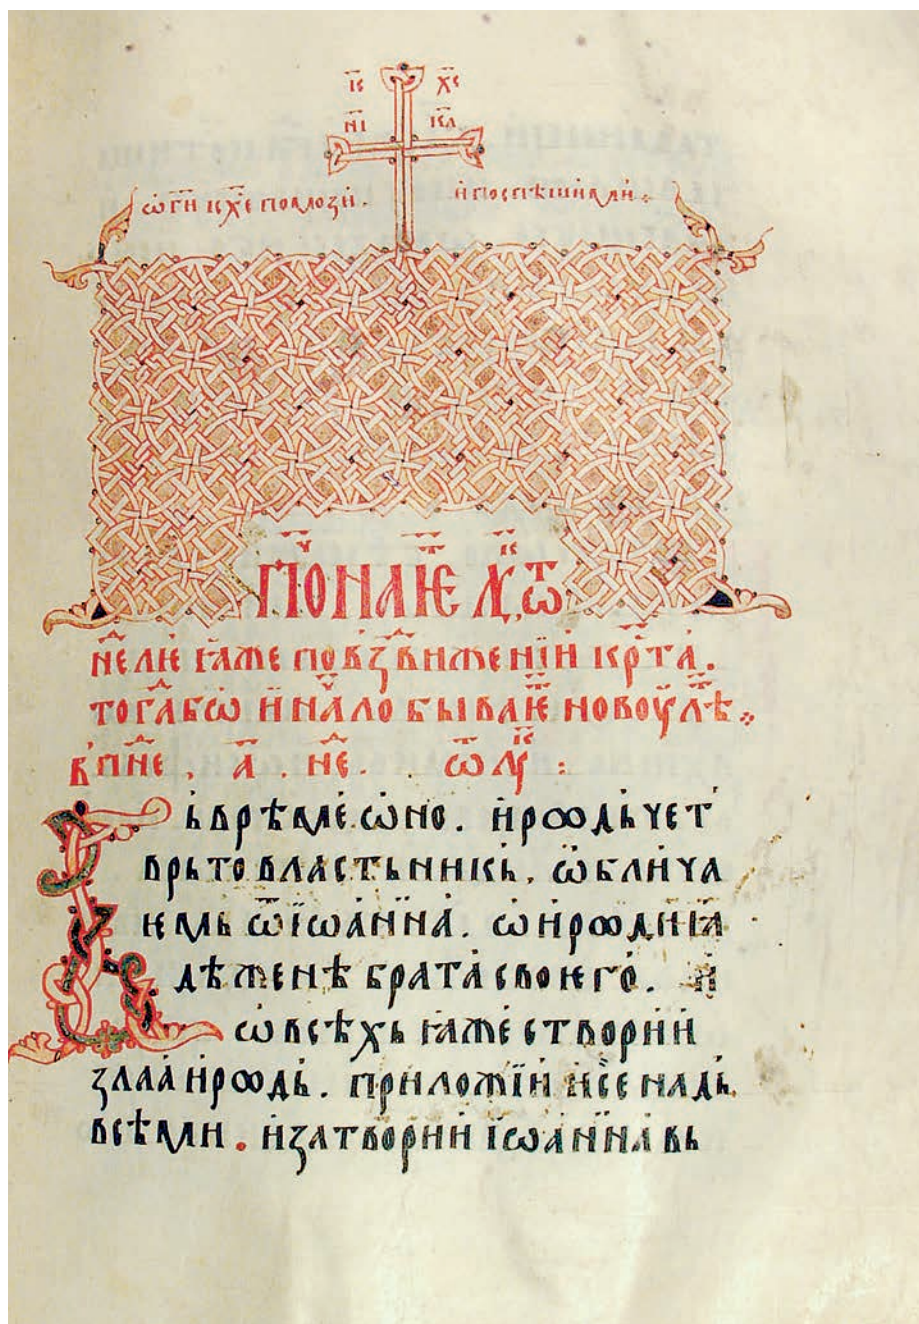 І҃С Х҃С
НИ КА
Ѡ Г҃И І҃С Х҃Е ПОМОЗИ . И ПОСПѢШИ МИ :
ПОНА҃Ѥ Л҃К, Ѿ
Н҃ЕЛѤ ꙖЖЕ ПО ВЪЗ҃ВИЖЕНЇИ КР҃ТА .
ТОГ҃А БѠ И НА҃ЛО БЫВАѤ҃ НОВОУ Л҃Ѣ :
В П҃НЕ . А҃ . Н҃Е . Ѿ Л҃К :
ВЬ ВРѢМЕ ѠНО . ИРѠДЬ ЧЕТ
ВРЬТОВЛАСТЬНИКЬ . ѠБЛИЧА
ѤМЬ Ѿ ІѠАННА . Ѡ ИРѠДИꙖ
ДѢ ЖЕНѢ БРАТА СВОѤГО . И
Ѡ ВСѢХЬ ꙖЖЕ СТВОРИ И
ЗЛАА ИРѠДЬ . ПРИЛОЖЇИ И СЕ НАДЬ
ВСѢМИ . И ЗАТВОРИ И ІѠАННА ВЬ